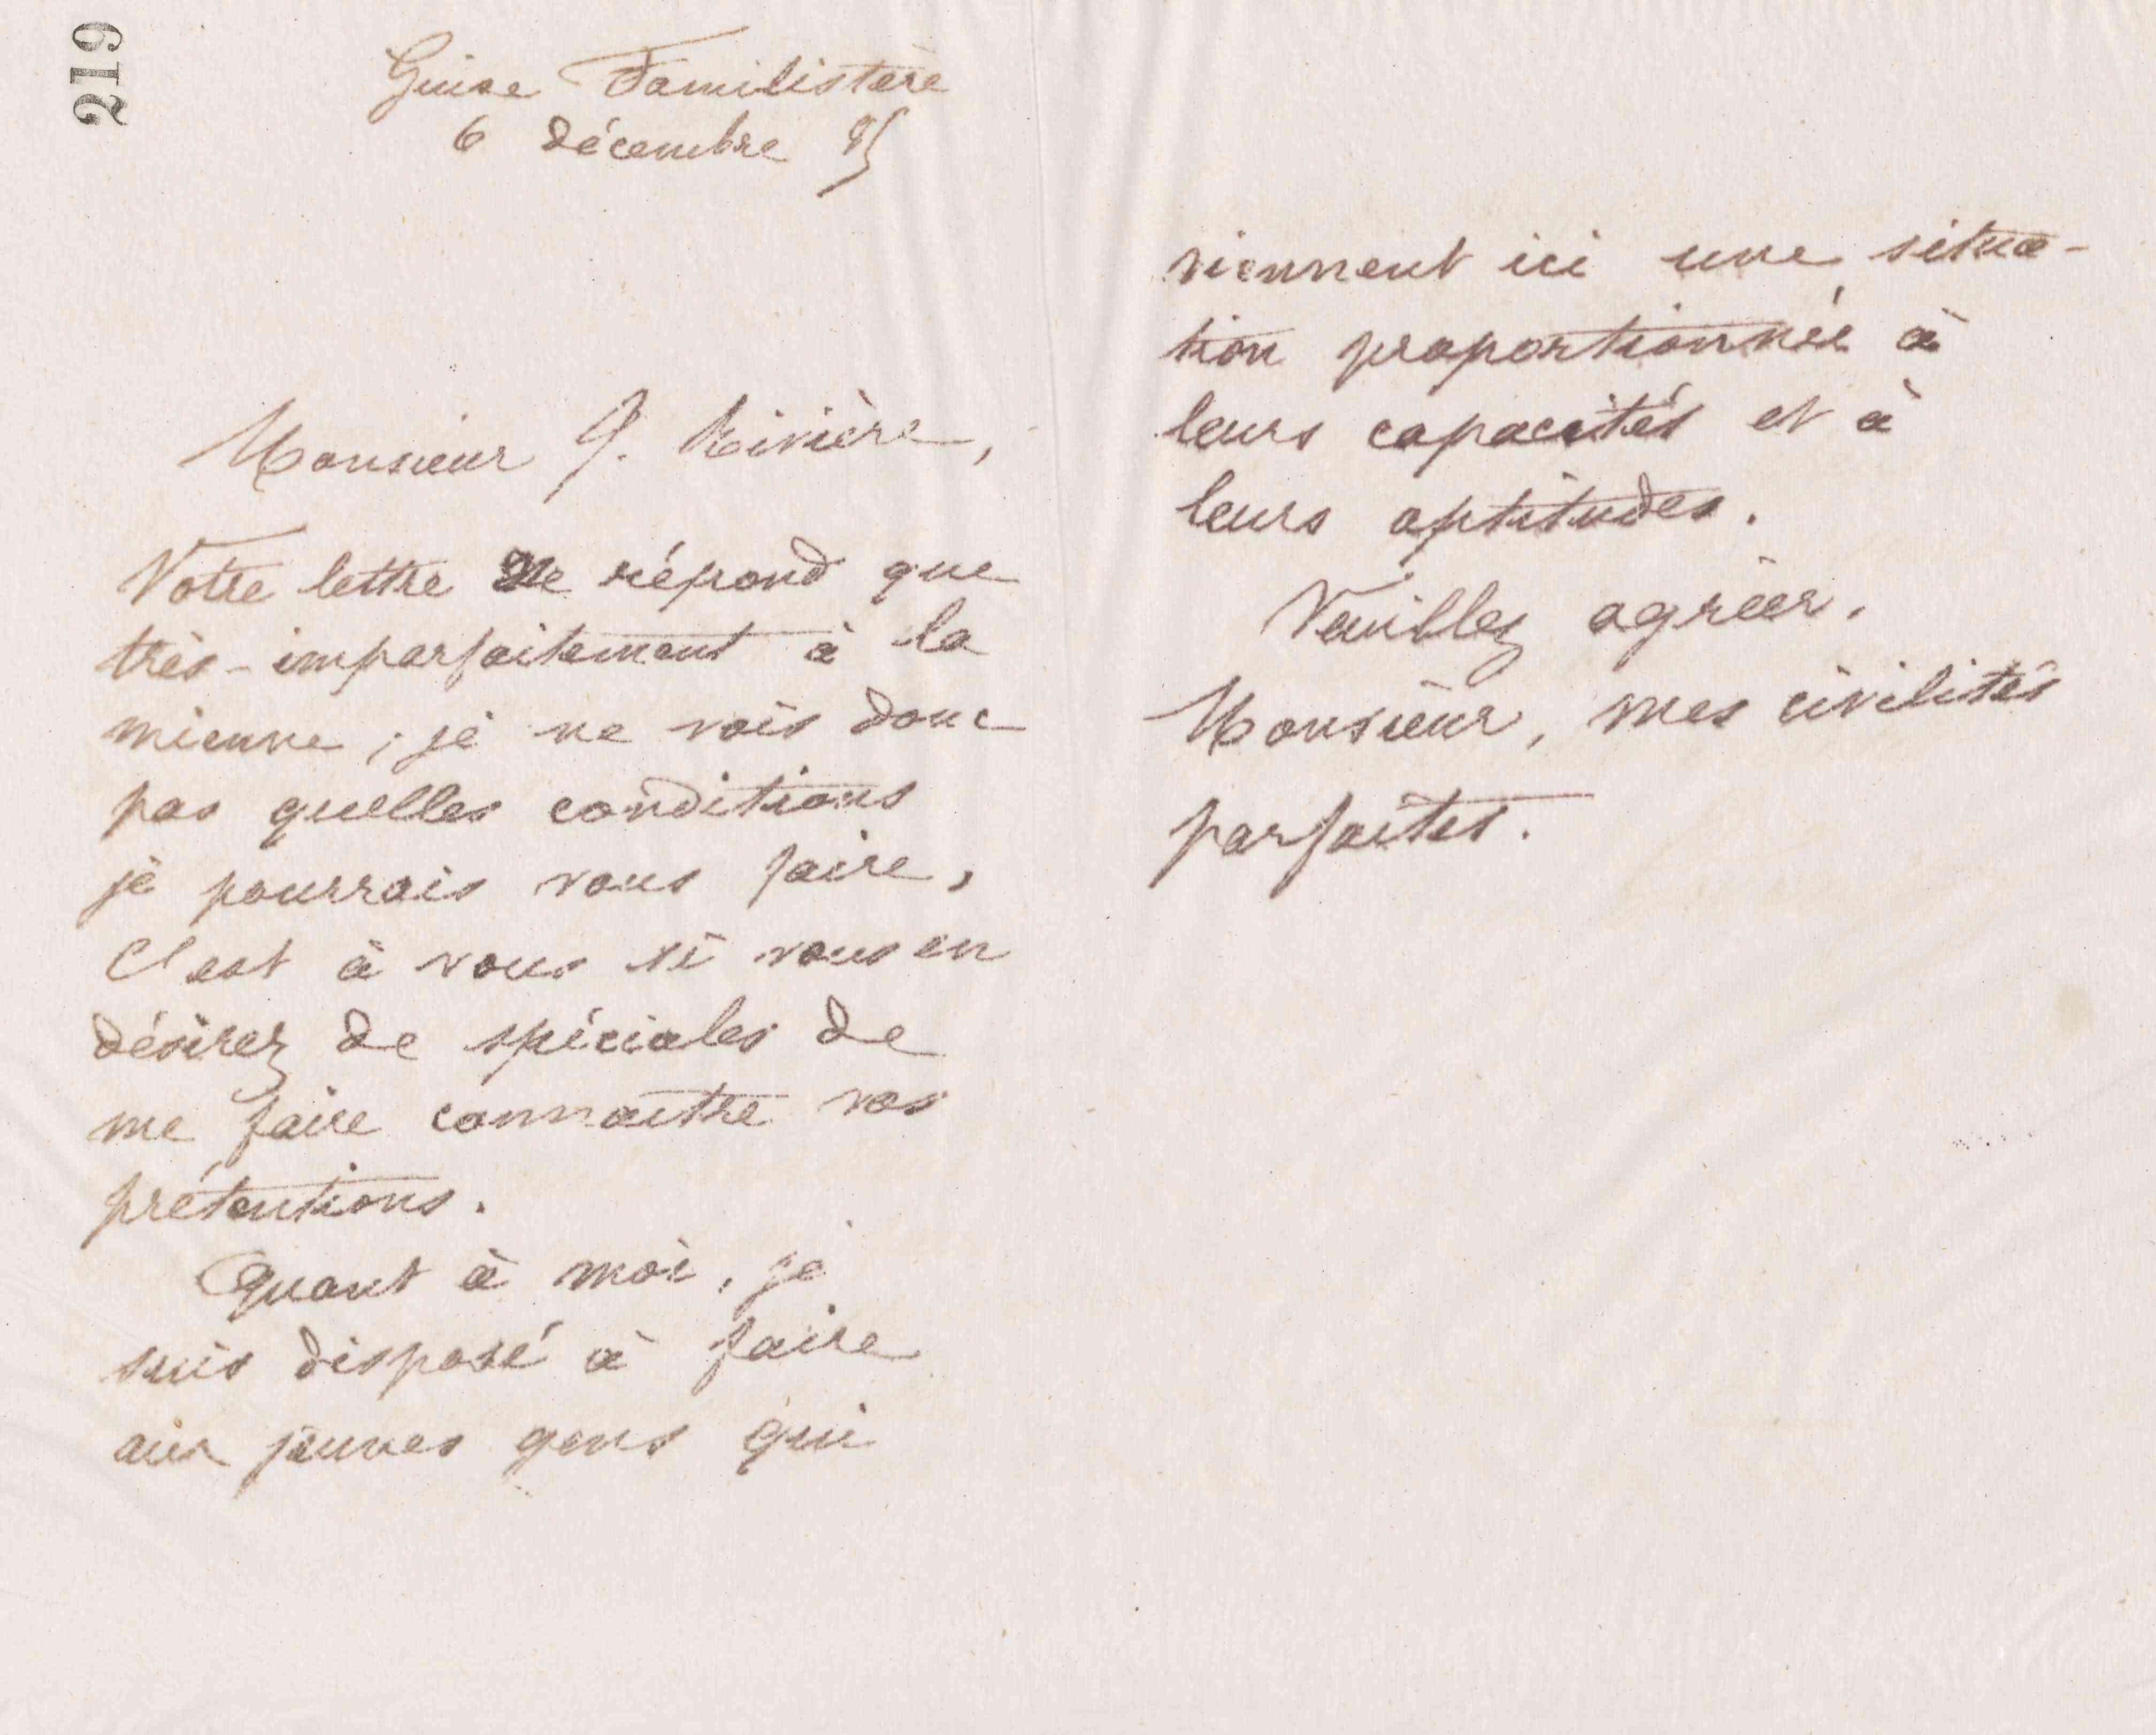 219
Guise Familistère
6 décembre 85
Monsieur J. Rivière,
Votre lettre ne répond que
très-imparfaitement à la
mienne ; je ne vois donc
pas quelles conditions
je pourrais vous faire,
C'est à vous si vous en
désirez de spéciales de
me faire connaître vos
prétentions.
Quant à moi, je
suis disposé à faire
aux jeunes gens qui
viennent ici une situa-
tion proportionnée à
leurs capacités et à
leurs aptitudes.
Veuillez agréer,
Monsieur, mes civilités
parfaites.